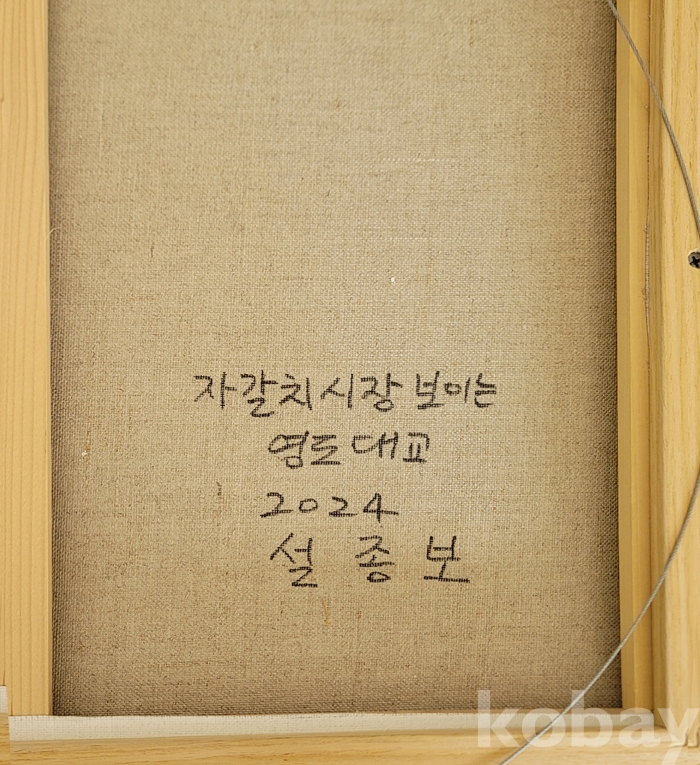 자갈치시장 보이는
영도대교
2024
설종보
kobay